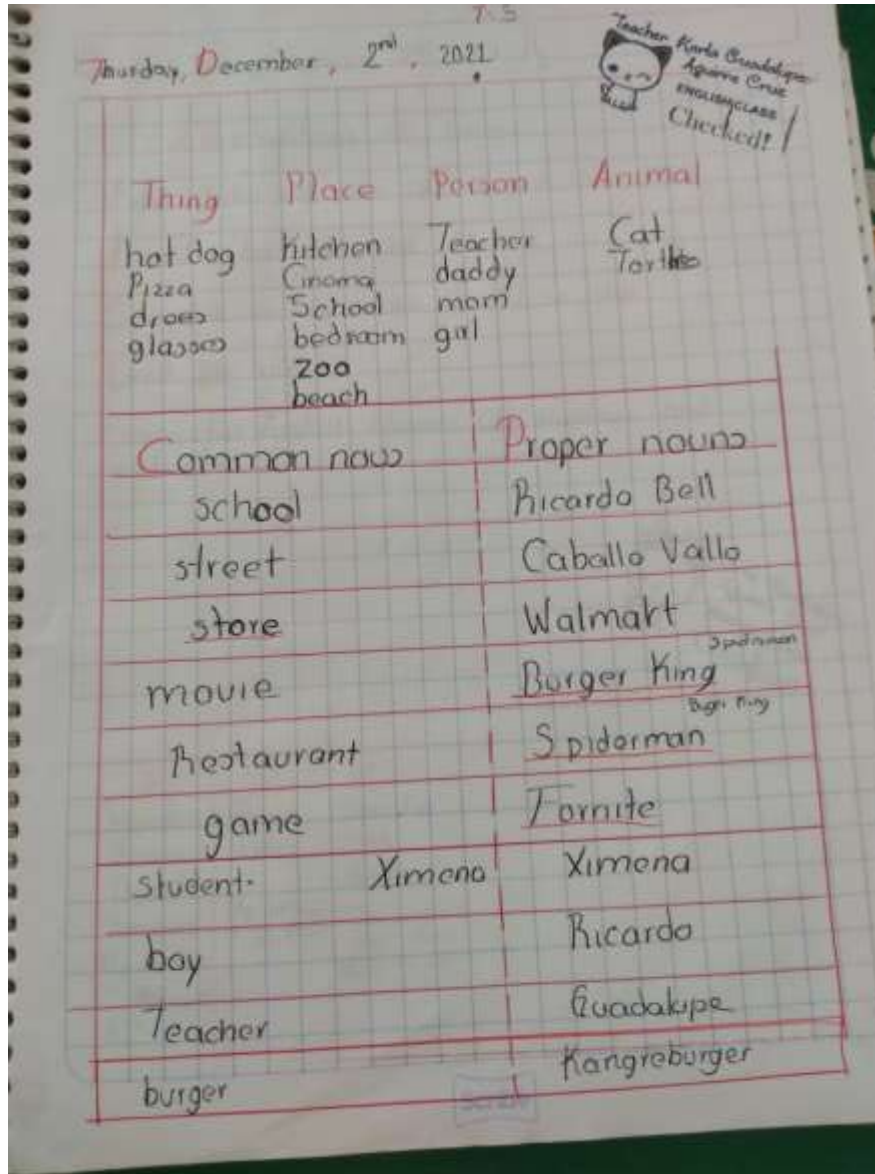 7.5
Thurday, December, 2nd, 2021
Teacher Karla Guadalupe
Aguirre Cruz
ENGLISH CLASS
Checked!
Thing Place Person Animal
hot dog kitchen Teacher Cat
Pizza Cinema daddy
dress School mom
glasses bedroom girl
zoo
beach
Common nous Proper nouns
school Ricardo Bell
street Caballo Vallo
store Walmart
Spiderman
movie Burger King
Buger King
Restaurant Spiderman
game Fornite
student. Ximena Ximena
boy Ricardo
Teacher Guadalupe
burger Kangreburger